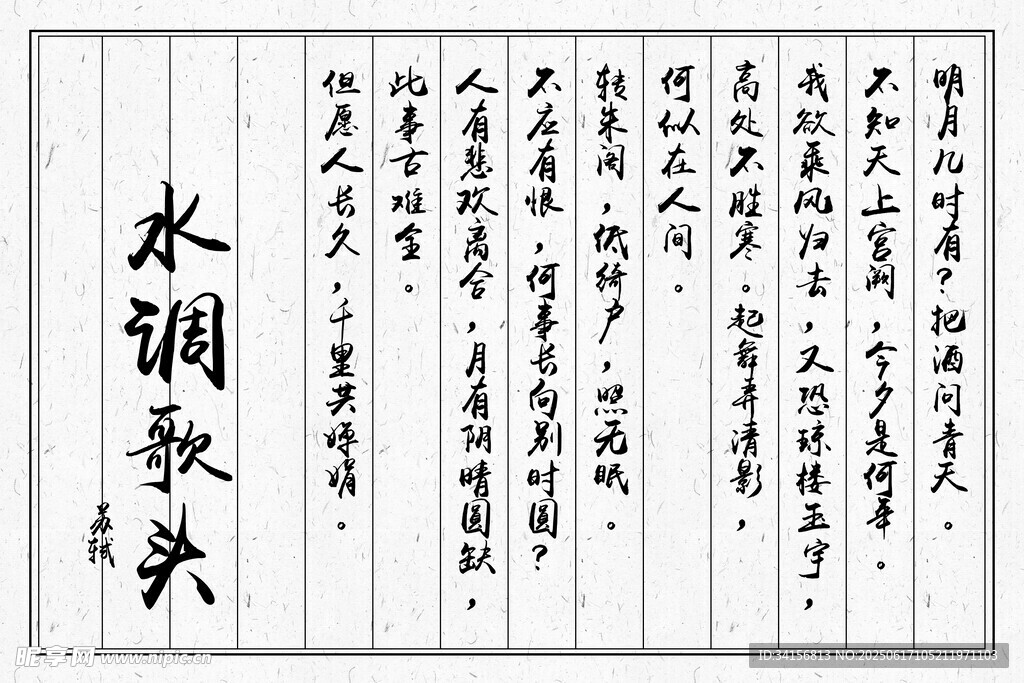 明月几时有？把酒问青天。
不知天上宫阙，今夕是何年。
我欲乘风归去，又恐琼楼玉宇，
高处不胜寒。起舞弄清影，
何似在人间。
转朱阁，低绮户，照无眠。
不应有恨，何事长向别时圆？
人有悲欢离合，月有阴晴圆缺，
此事古难全。
但愿人长久，千里共婵娟。
水调歌头
苏轼
昵享网 www.nipic.cn
ID:34156813 NO:20250617105211971103